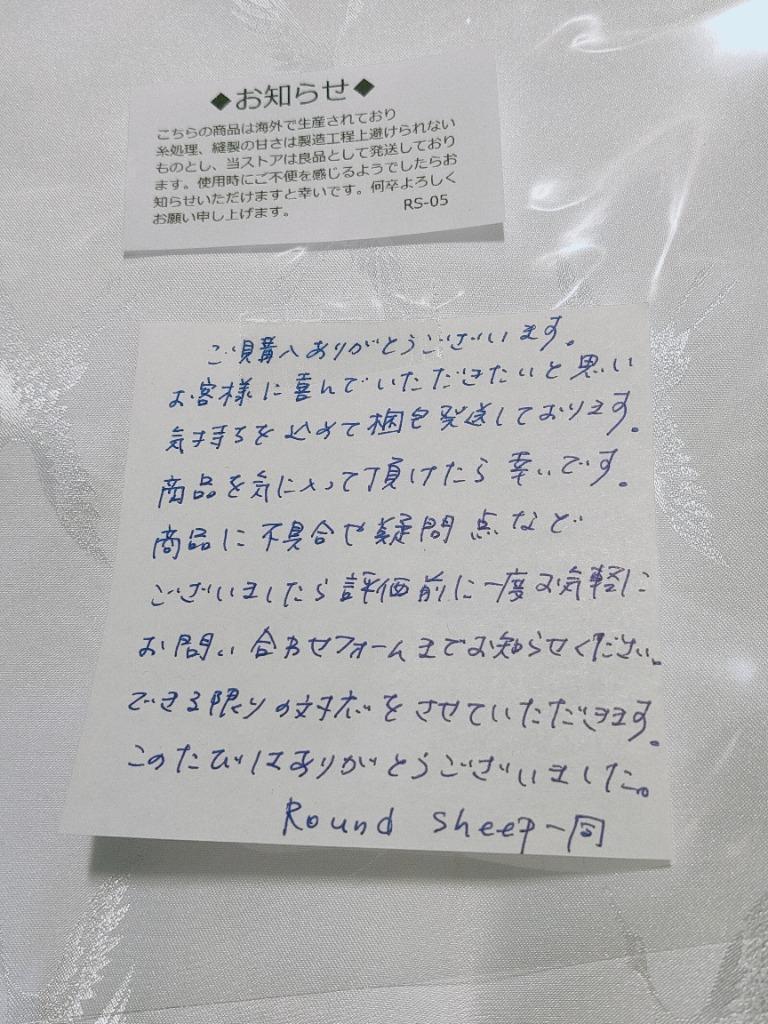 ◆お知らせ◆
こちらの商品は海外で生産されており
糸処理、縫製の甘さは製造工程上避けられない
ものとし、当ストアは良品として発送しており
ます。使用時にご不便を感じるようでしたらお
知らせいただけますと幸いです。何卒よろしく
お願い申し上げます。 RS-05
ご購入ありがとうございます。
お客様に喜んでいただきたいと思い
気持ちを込めて梱包発送しております。
商品を気に入って頂けたら幸いです。
商品に不具合や疑問点など
ございましたら評価前に一度お気軽に
お問い合わせフォームまでお知らせください。
できる限りの対応をさせていただきます。
このたびはありがとうございました。
Round sheep一同